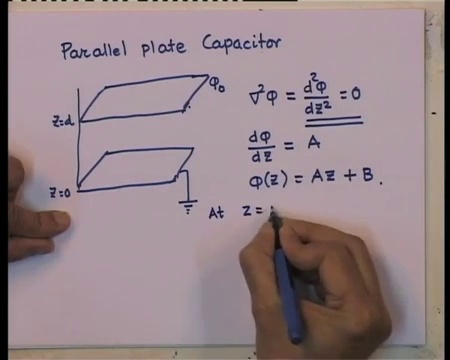 Parallel plate Capacitor
φ₀
z=d
z=0
∇²φ = d²φ/dz² = 0
dφ/dz = A
φ(z) = Az + B.
At z =